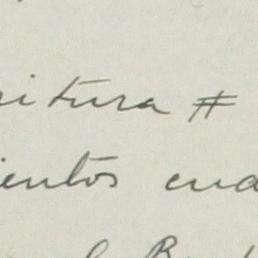 ritura #
ientos cua